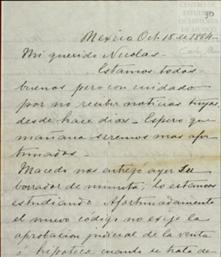 30
Mexico Oct. 18 de 1884.
Mi querido Nicolas.
Estamos todos
buenos pero con cuidado
por no recibir noticias tuyas
desde hace dias. Espero que
mañana seremos mas afor-
tunados.
Macedo nos entregó ayer su
borrador de minuta, lo estamos
estudiando. Afortunadamente
el nuevo código no exige la
aprobacion judicial de la venta
ó hipoteca cuando se trata de